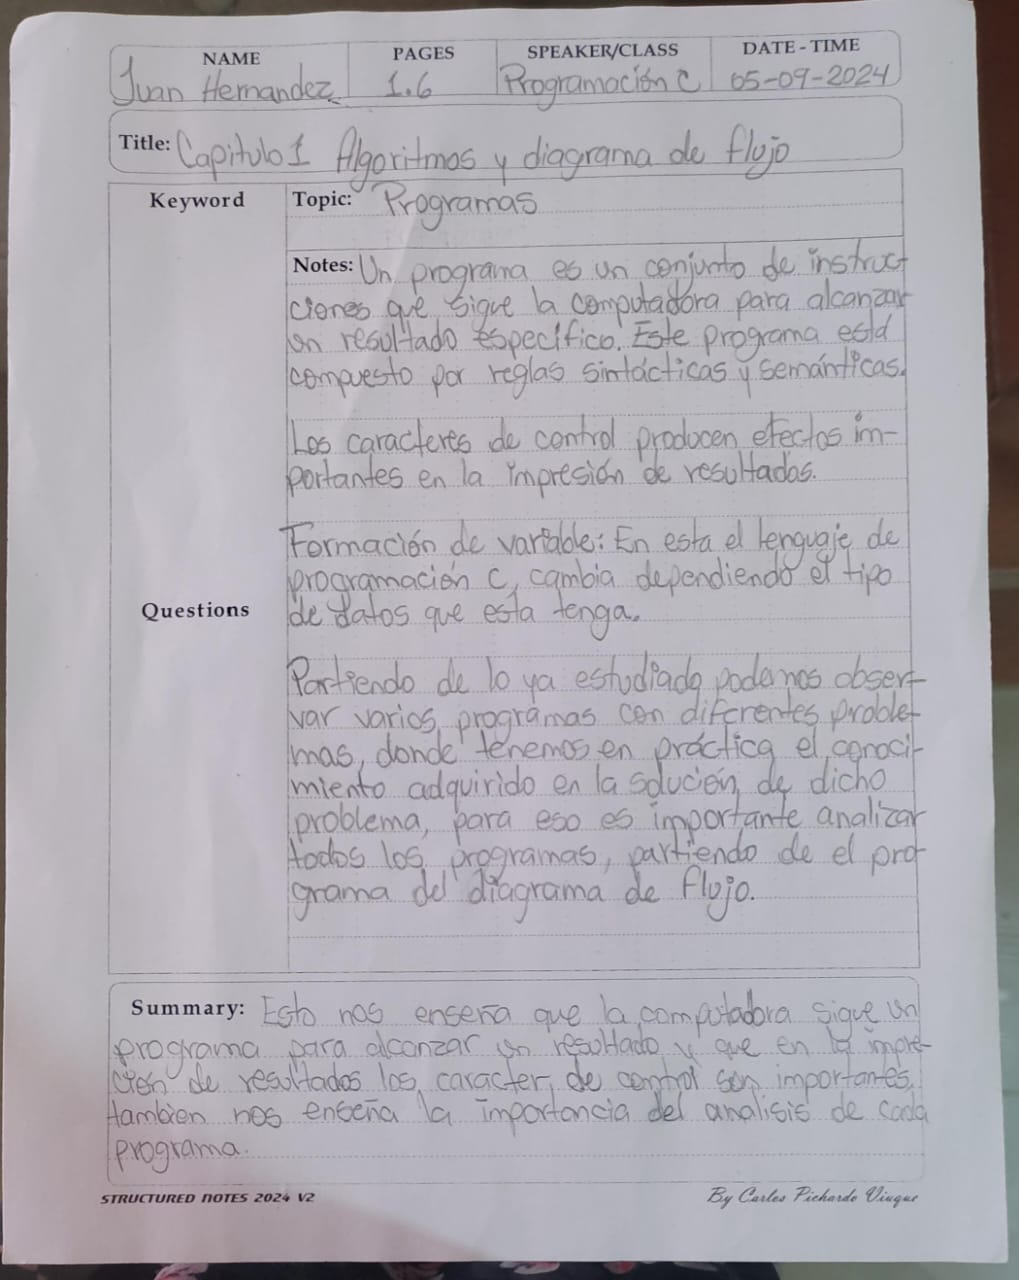 NAME PAGES SPEAKER/CLASS DATE - TIME
Juan Hernandez 1.6 Programación C 05-09-2024
Title: Capitulo 1 Algoritmos y diagrama de flujo
Keyword
Topic: Programas
Notes: Un programa es un conjunto de instruc-
ciones que sigue la computadora para alcanzar
un resultado específico. Este programa está
compuesto por reglas sintácticas y semánticas.
Los caracteres de control producen efectos im-
portantes en la impresión de resultados.
Formación de variable: En esta el lenguaje de
programación C, cambia dependiendo el tipo
de datos que esta tenga.
Questions
Partiendo de lo ya estudiado podemos obser-
var varios programas con diferentes proble-
mas, donde tenemos en práctica el conoci-
miento adquirido en la solución de dicho
problema, para eso es importante analizar
todos los programas, partiendo de el pro-
grama del diagrama de flujo.
Summary: Esto nos enseña que la computadora sigue un
programa para alcanzar un resultado y que en la impre-
cion de resultados los caracter de control son importantes,
tambien nos enseña la importancia del analisis de cada
programa.
STRUCTURED NOTES 2024 V2 By Carlos Pichardo Viuque